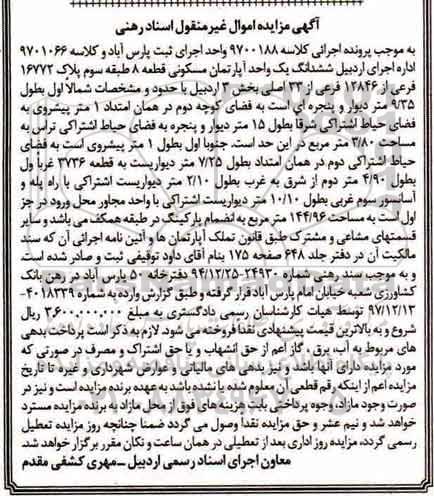 آگهی مزایده اموال غیرمنقول اسناد رهنی
به موجب پرونده اجرائی کلاسه ۹۷۰۰۱۸۸ واحد اجرای ثبت پارس آباد و کلاسه ۹۷۰۱۰۶۶
اداره اجرای اردبیل ششدانگ یک واحد آپارتمان مسکونی قطعه ۸ طبقه سوم پلاک ۱۶۷۷۲
فرعی از ۱۲۸۴۶ فرعی از ۲۷ اصلی بخش ۳ اردبیل با حدود و مشخصات شمالاً اول بطول
۹/۳۵ متر دیوار و پنجره ای است به فضای کوچه دوم در همان امتداد ۱ متر پیشروی به
فضای حیاط اشتراکی شرقا بطول ۱۵ متر دیوار و پنجره به فضای حیاط اشتراکی تراس به
مساحت ۳/۸۰ متر مربع در این حد است. جنوبا اول بطول ۱ متر پیشروی است به فضای
حیاط اشتراکی دوم در همان امتداد بطول ۷/۲۵ متر دیواریست به قطعه ۳۷۳۶ غرباً ول
بطول ۴/۹۰ متر دوم از شرق به غرب بطول ۲/۱۰ متر دیواریست اشتراکی با راه پله و
آسانسور سوم غربی بطول ۱۰/۱۰ متر دیواریست اشتراکی با واحد مجاور محل ورود در جز
اول است به مساحت ۱۴۴/۹۶ متر مربع به انضمام پارکینگ در طبقه همکف می باشد و سایر
قسمتهای مشاعی و مشترک طبق قانون تملک آپارتمان ها و آئین نامه اجرائی آن که سند
مالکیت آن در دفتر جلد ۶۴۸ صفحه ۱۷۵ بنام آقای داود توفیقی ثبت و صادر شده است.
و به موجب سند رهنی شماره ۲۴۹۳۰-۹۴/۱۲/۲۵ دفترخانه ۵۰ پارس آباد در رهن بانک
کشاورزی شعبه خیابان امام پارس آباد قرار گرفته و طبق گزارش وارده به شماره ۴۰۱۸۳۳۹-
۹۷/۱۲/۱۳ توسط هیات کارشناسان رسمی دادگستری به مبلغ ۳,۶۰۰,۰۰۰,۰۰۰ ریال
شروع و به بالاترین قیمت پیشنهادی نقدا فروخته می شود. لازم به ذکر است پرداخت بدهی
های مربوط به آب، برق، گاز اعم از حق انشهاب و یا حق اشتراک و مصرف در صورتی که
مورد مزایده دارای آنها باشد و نیز بدهی های مالیاتی و عوارض شهرداری و غیره تا تاریخ
مزایده اعم از اینکه رقم قطعی آن معلوم شده یا نشده باشد به عهده برنده مزایده است و نیز در
صورت وجود مازاد، وجوه پرداختی بابت هزینه های فوق از محل مازاد به برنده مزایده مسترد
خواهد شد و نیم عشر و حق مزایده نقداً وصول می گردد ضمنا چنانچه روز مزایده تعطیل
رسمی گردد، مزایده روز اداری بعد از تعطیلی در همان ساعت و مکان مقرر برگزار خواهد شد.
معاون اجرای اسناد رسمی اردبیل -مهری کشفی مقدم